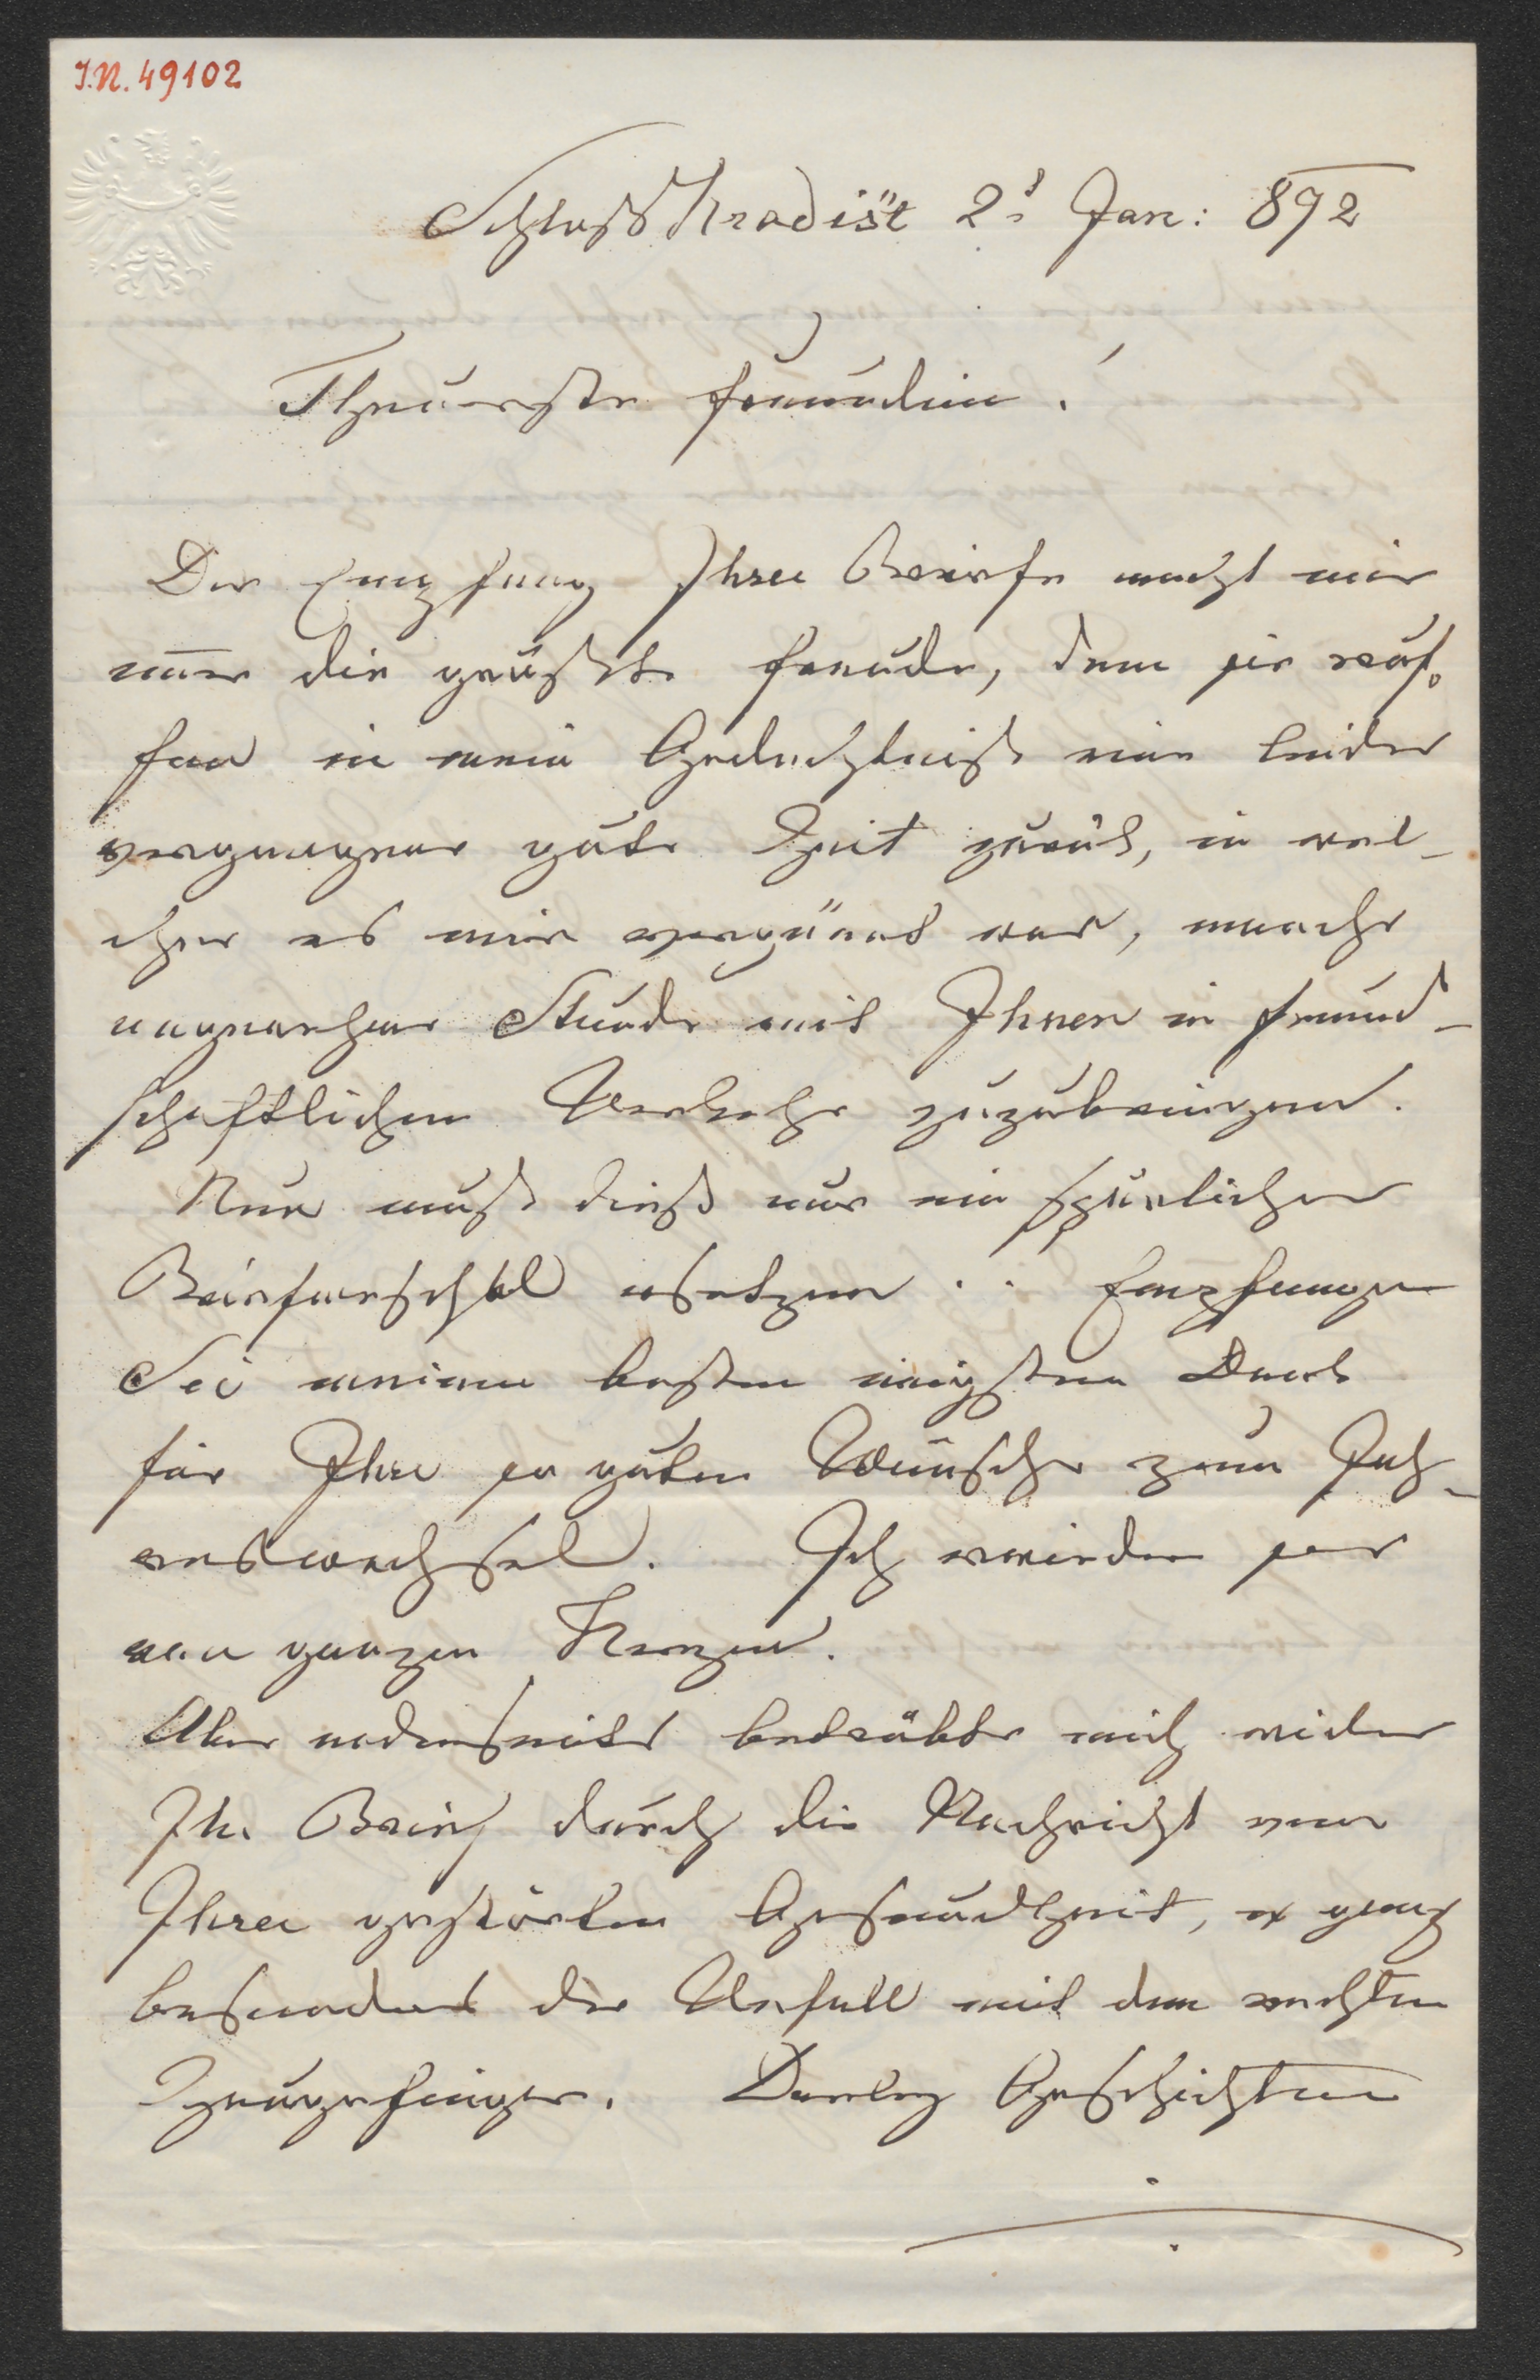 I.N. 49102
Schloß Hradišt 2t Jan: 892
Theuerste Freundin!
Der Empfang Ihrer Briefe macht mir
im̅er die größte Freude, denn sie ruf=
fen in mein Gedächtniß eine leider
vergangene gute Zeit zurück, in wel-
cher es mir vergönnt war, manche
angenehme Stunde mit Ihnen in freund-
schaftlichem Verkehr zuzubringen.
Nun muß dieß nur ein spärlicher
Briefwechsel ersetzen . . Empfangen
Sie meinen besten innigsten Dank
für Ihre so guten Wünsche zum Jah-
reswechsel. Ich erwiedere sie
von ganzen Herzen.
Aber anderseits betrübte mich wieder
Ihr Brief durch die Nachricht von
Ihrer gestörten Gesundheit, ganz
besonders der Unfall mit dem rechten
Zeigefinger. Derley Geschichten